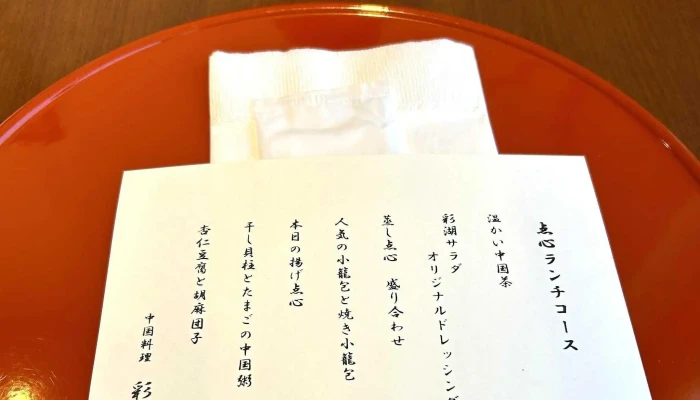 点心ランチコース
温かい中国茶
彩湖サラダ
オリジナルドレッシング
蒸し点心 盛り合わせ
人気の小籠包と焼き小籠包
本日の揚げ点心
干し貝柱とたまごの中国粥
杏仁豆腐と胡麻団子
中国料理 彩